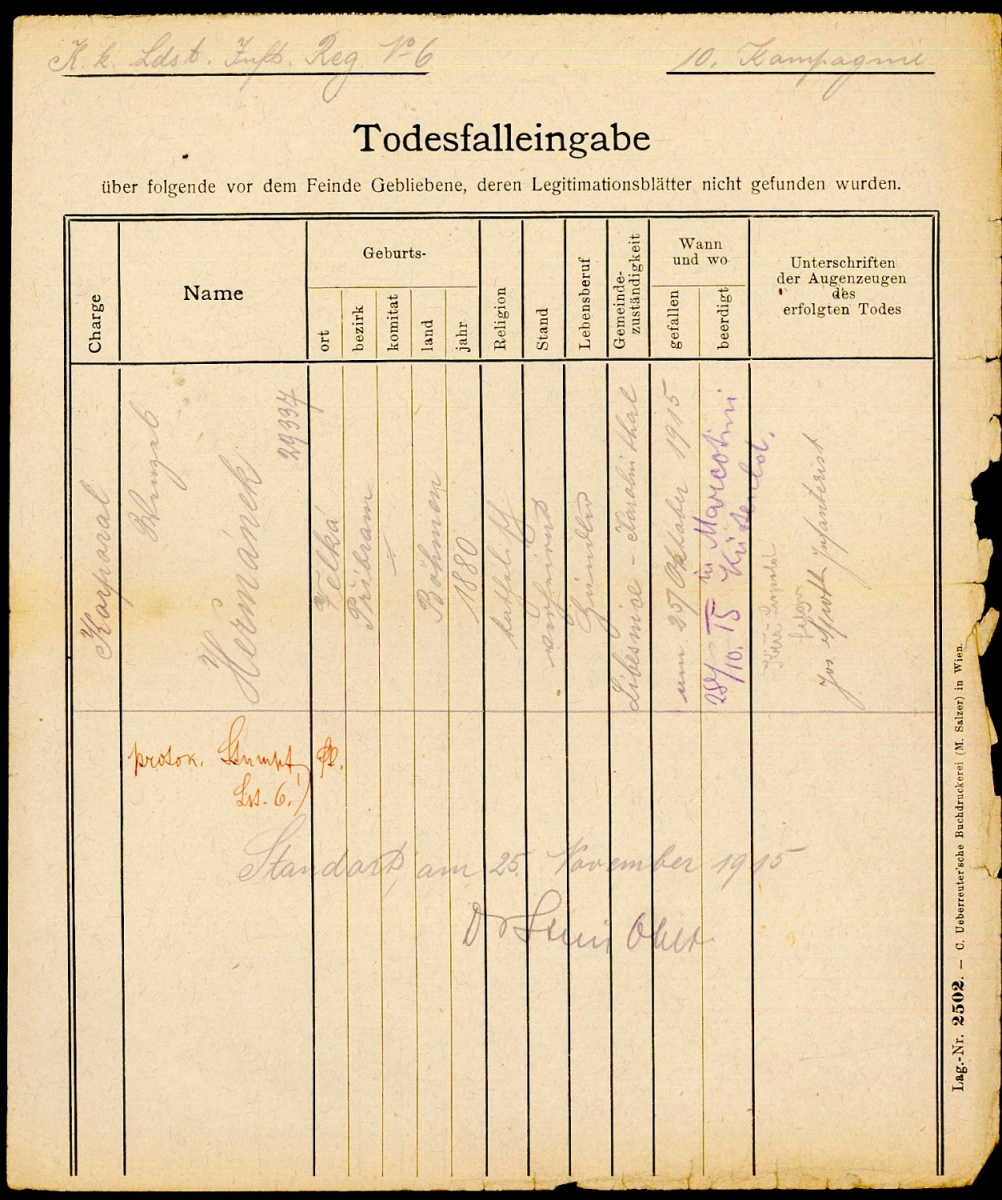 K. k. Ldst. Inft. Reg Nº 6
10. Kompagnie
Todesfalleingabe
über folgende vor dem Feinde Gebliebene, deren Legitimationsblätter nicht gefunden wurden.
Charge
Name
Geburts-
ort
bezirk
komitat
land
jahr
Religion
Stand
Lebensberuf
Gemeinde-
zuständigkeit
Wann
und wo
gefallen
beerdigt
Unterschriften
der Augenzeugen
des
erfolgten Todes
Korporal
Wenzel
Heřmánek
29334
Velká
Přibram
–
Böhmen
1880
katholisch
verheirat
Händler
Libesnice - Karolinthal
am 25/ Oktober 1915
28/10. 15 in Marcotini
Küstenld.
Jos Infanterist
protok. Stumpf
Lst. 6.
Standort, am 25. November 1915
Dr
Lag.-Nr. 2502. — C. Ueberreuter'sche Buchdruckerei (M. Salzer) in Wien.